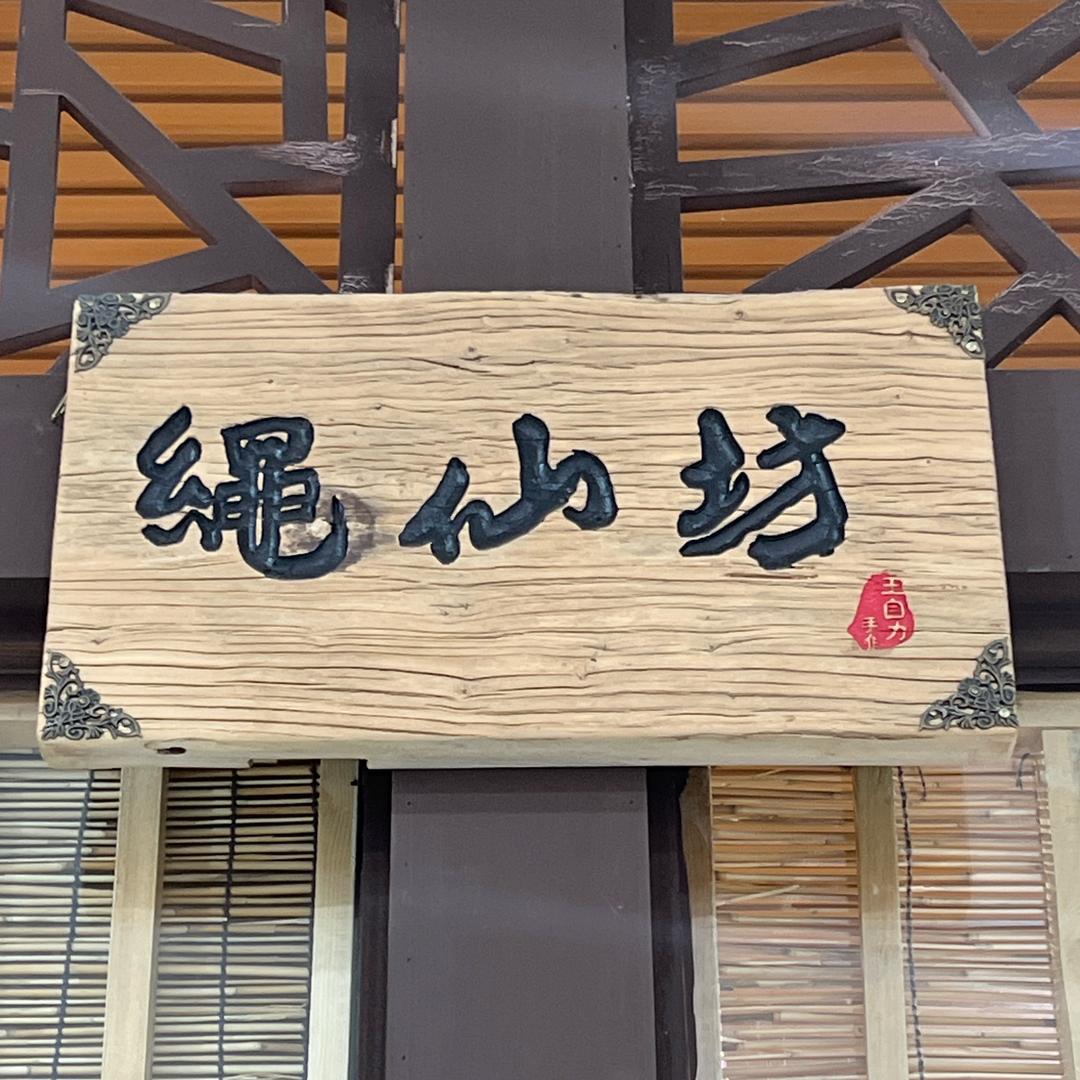 繩仙坊
王自力
手作